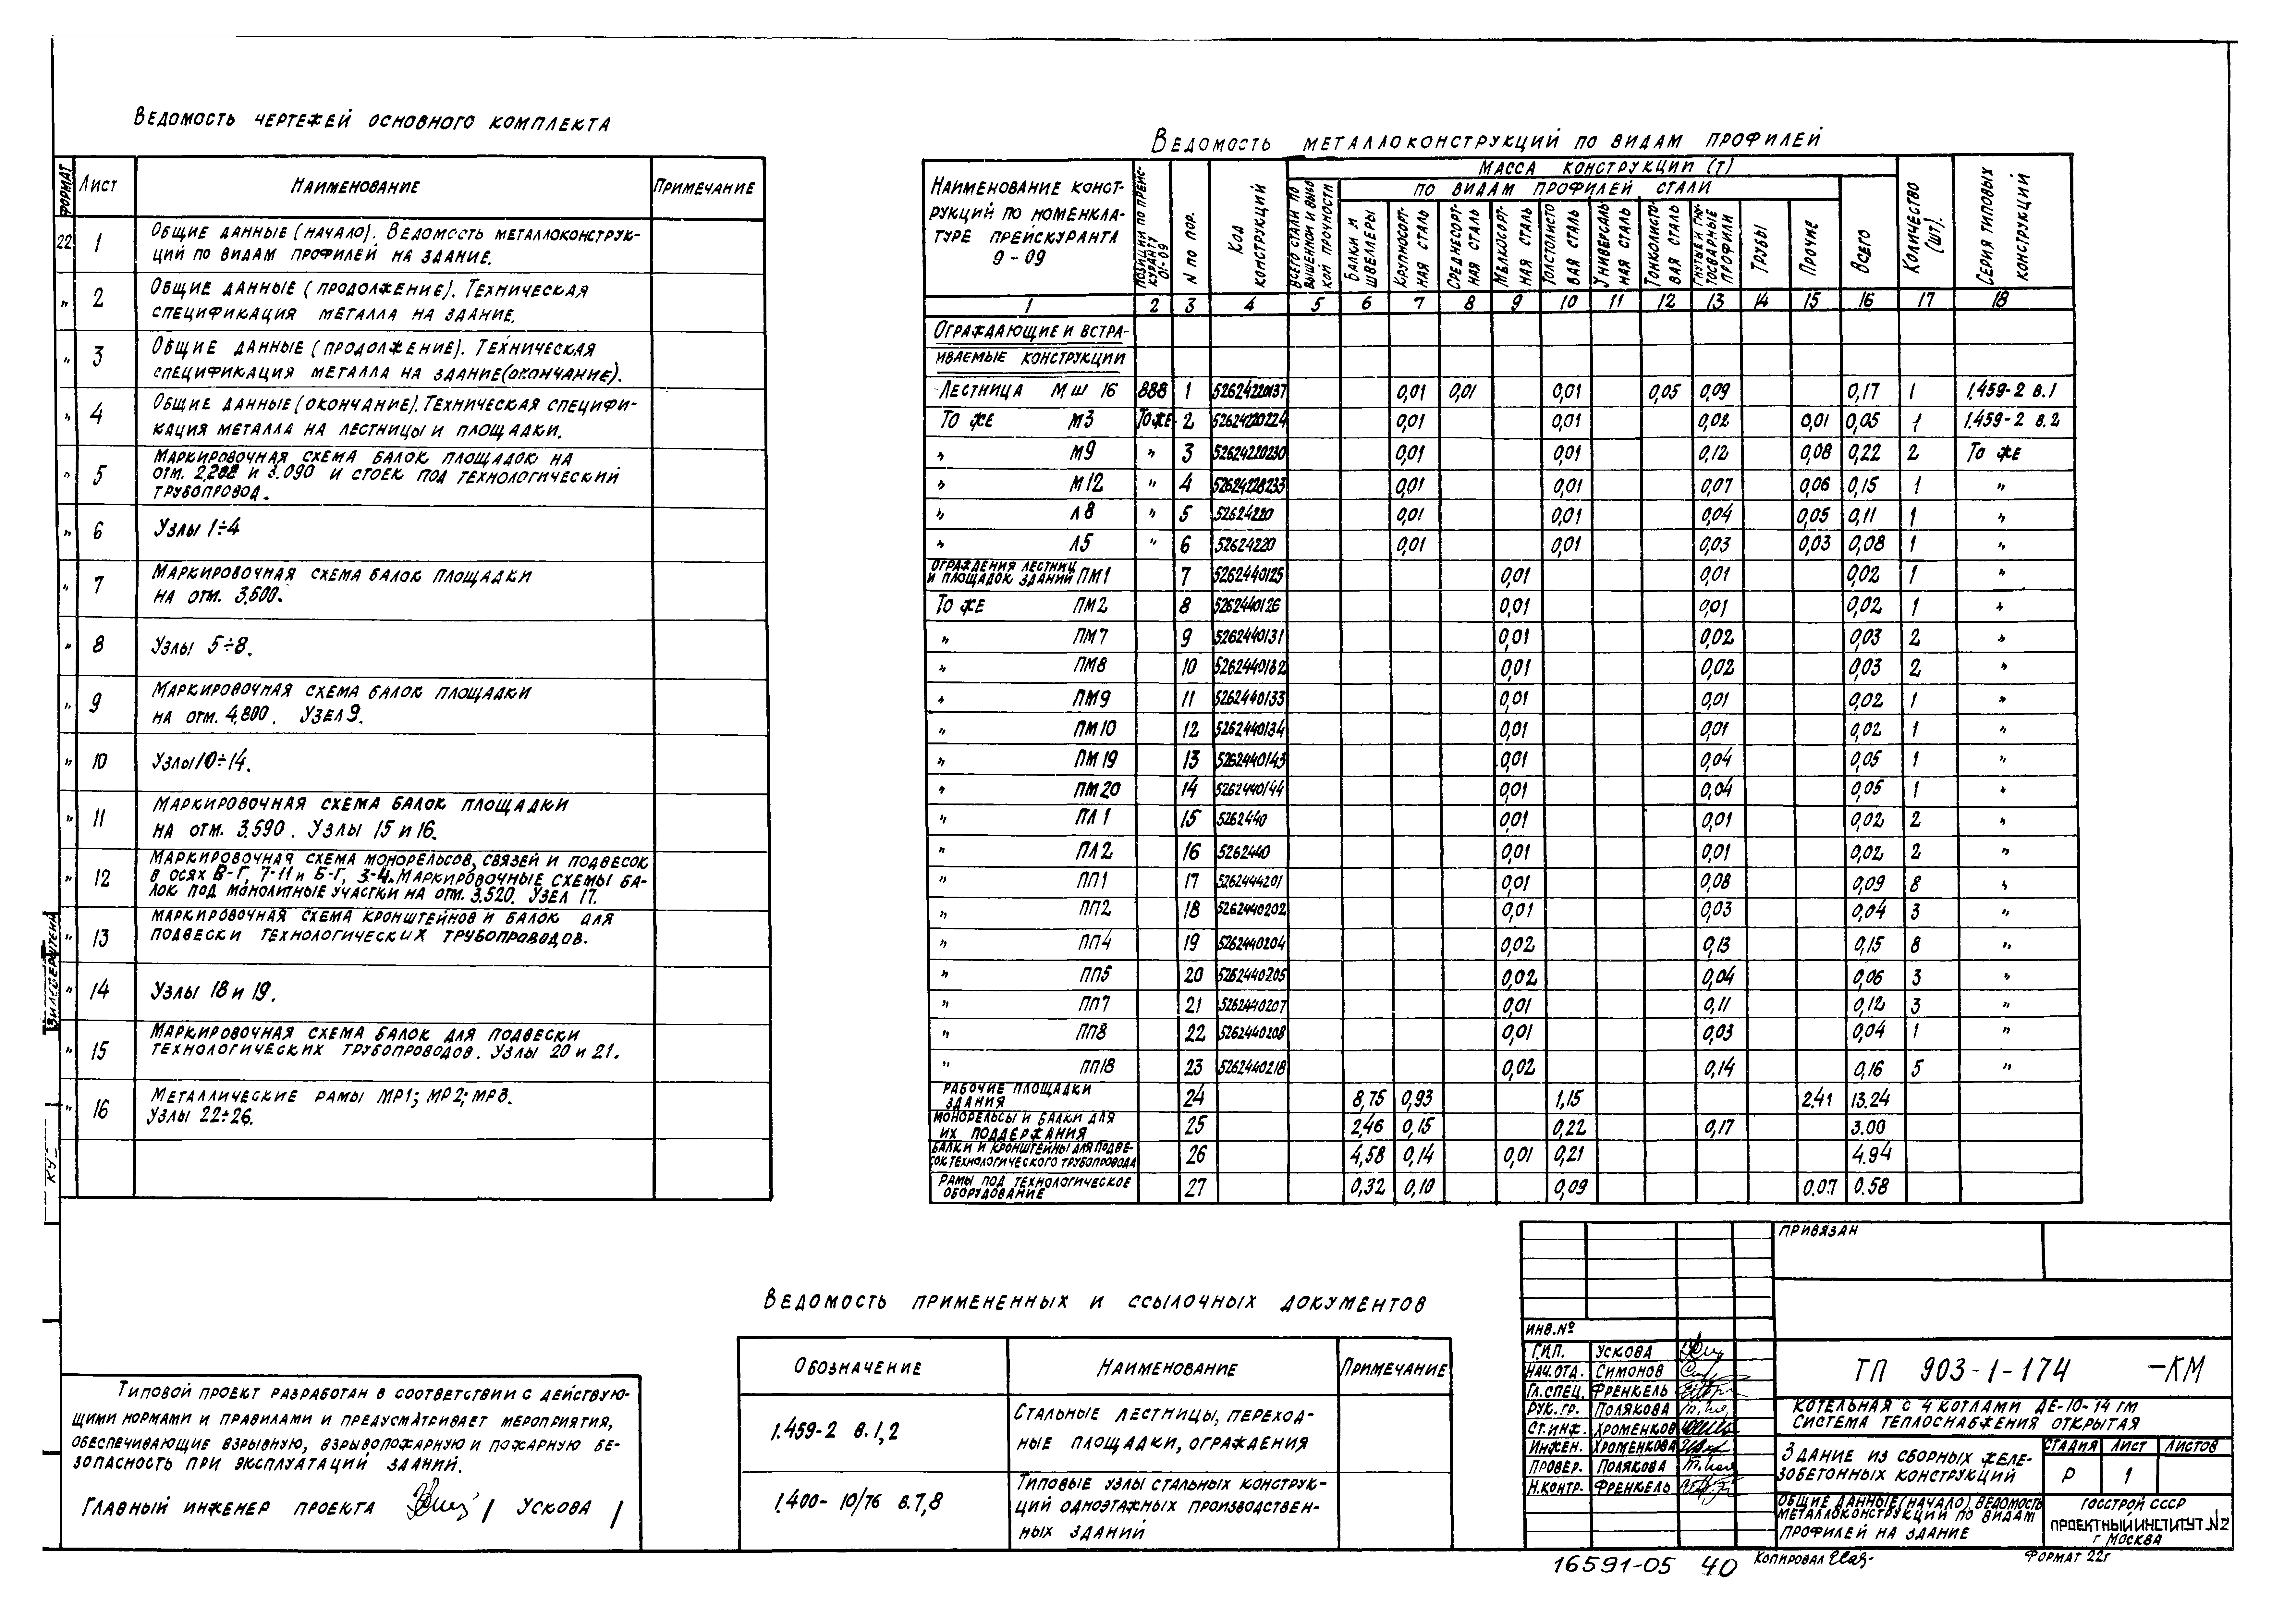 Ведомость чертежей основного комплекта
Формат Лист Наименование Примечание
22 1 Общие данные (начало). Ведомость металлоконструк-
ций по видам профилей на здание.
" 2 Общие данные (продолжение). Техническая
спецификация металла на здание.
" 3 Общие данные (продолжение). Техническая
спецификация металла на здание (окончание).
" 4 Общие данные (окончание). Техническая специфи-
кация металла на лестницы и площадки.
" 5 Маркировочная схема балок площадок на
отм. и 3.090 и стоек под технологический
трубопровод.
" 6 Узлы 1÷4
" 7 Маркировочная схема балок площадки
на отм. 3.600.
" 8 Узлы 5÷8.
" 9 Маркировочная схема балок площадки
на отм. 4.800. Узел 9.
" 10 Узлы 10÷14.
" 11 Маркировочная схема балок площадки
на отм. 3.590. Узлы 15 и 16.
" 12 Маркировочная схема монорельсов, связей и подвесок
в осях В-Г, 7-11 и Б-Г, 3-4. Маркировочные схемы ба-
лок под монолитные участки на отм. 3.520. Узел 17.
" 13 Маркировочная схема кронштейнов и балок для
подвески технологических трубопроводов.
" 14 Узлы 18 и 19.
" 15 Маркировочная схема балок для подвески
технологических трубопроводов. Узлы 20 и 21.
" 16 Металлические рамы МР1; МР2; МР3.
Узлы 22÷26.
Ведомость металлоконструкций по видам профилей
Наименование конст-
рукций по номенкла-
туре прейскуранта
9-09
Позиции по прейс-
куранту
01-09
N по пор.
Код
конструкций
Масса конструкции (т)
Всего стали по
вышенной и высо
кой прочности
по видам профилей стали
Балки и
швеллеры
Крупносорт-
ная сталь
Среднесорт-
ная сталь
Мелкосорт-
ная сталь
Толстолисто
вая сталь
Универсаль
ная сталь
Тонколисто-
вая сталь
Гнутые и гну-
тосварные
профили
Трубы
Прочие
Всего
Количество
(шт).
Серия типовых
конструкций
1 2 3 4 5 6 7 8 9 10 11 12 13 14 15 16 17 18
Ограждающие и встра-
иваемые конструкции
Лестница МШ 16 888 1 52624220137 0,01 0,01 0,01 0,05 0,09 0,17 1 1.459-2 в.1
То же М3 То же 2 52624220224 0,01 0,01 0,02 0,01 0,05 1 1.459-2 в.2
" М9 " 3 52624220230 0,01 0,01 0,12 0,08 0,22 2 То же
" М12 " 4 0,01 0,01 0,07 0,06 0,15 1 "
" Л8 " 5 52624220 0,01 0,01 0,04 0,05 0,11 1 "
" Л5 " 6 52624220 0,01 0,01 0,03 0,03 0,08 1 "
Ограждения лестниц
и площадок зданий ПМ1 7 5262440125 0,01 0,01 0,02 1 "
То же ПМ2 8 5262440126 0,01 0,01 0,02 1 "
" ПМ7 9 5262440131 0,01 0,02 0,03 2 "
" ПМ8 10 5262440132 0,01 0,02 0,03 2 "
" ПМ9 11 5262440133 0,01 0,01 0,02 1 "
" ПМ10 12 5262440134 0,01 0,01 0,02 1 "
" ПМ19 13 5262440143 0,01 0,04 0,05 1 "
" ПМ20 14 5262440144 0,01 0,04 0,05 1 "
" ПЛ1 15 5262440 0,01 0,01 0,02 2 "
" ПЛ2 16 5262440 0,01 0,01 0,02 2 "
" ПП1 17 5262444201 0,01 0,08 0,09 8 "
" ПП2 18 5262440202 0,01 0,03 0,04 3 "
" ПП4 19 5262440204 0,02 0,13 0,15 8 "
" ПП5 20 5262440205 0,02 0,04 0,06 3 "
" ПП7 21 5262440207 0,01 0,11 0,12 3 "
" ПП8 22 5262440208 0,01 0,03 0,04 1 "
" ПП18 23 5262440218 0,02 0,14 0,16 5 "
Рабочие площадки
здания 24 8,75 0,93 1,15 2.41 13.24
Монорельсы и балки для
их поддержания 25 2,46 0,15 0,22 0,17 3.00
Балки и кронштейны для подве-
сок технологического трубопровода 26 4,58 0,14 0,01 0,21 4.94
Рамы под технологическое
оборудование 27 0,32 0,10 0,09 0.07 0.58
Ведомость примененных и ссылочных документов
Обозначение Наименование Примечание
1.459-2 в.1,2 Стальные лестницы, переход-
ные площадки, ограждения
1.400-10/76 в.7,8 Типовые узлы стальных конструк-
ций одноэтажных производствен-
ных зданий
Типовой проект разработан в соответствии с действую-
щими нормами и правилами и предусматривает мероприятия,
обеспечивающие взрывную, взрывопожарную и пожарную бе-
зопасность при эксплуатаций зданий.
Главный инженер проекта / Ускова /
Привязан
Инв.№
Г.И.П. Ускова
Нач.отд. Симонов
Гл.спец. Френкель
Рук.гр. Полякова
Ст.инж. Хроменков
Инжен. Хроменкова
Провер. Полякова
Н.контр. Френкель
ТП 903-1-174 -КМ
Котельная с 4 котлами ДЕ-10-14 ГМ
Система теплоснабжения открытая
Здание из сборных желе-
зобетонных конструкций
Стадия Лист Листов
Р 1
Общие данные (начало). Ведомость
металлоконструкций по видам
профилей на здание
Госстрой СССР
Проектный институт №2
г Москва
16591-05 40
Копировал
Формат 22г